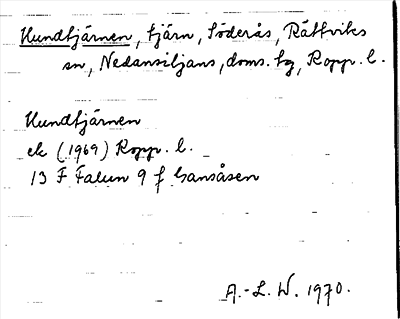 Hundtjärnen, tjärn, Söderås, Rättviks
sn, Nedansiljans, doms. tg, Kopp. l.
Hundtjärnen
ek (1969) Kopp. l.
13 F Falun 9 f Gansåsen
A.-L. W. 1970.